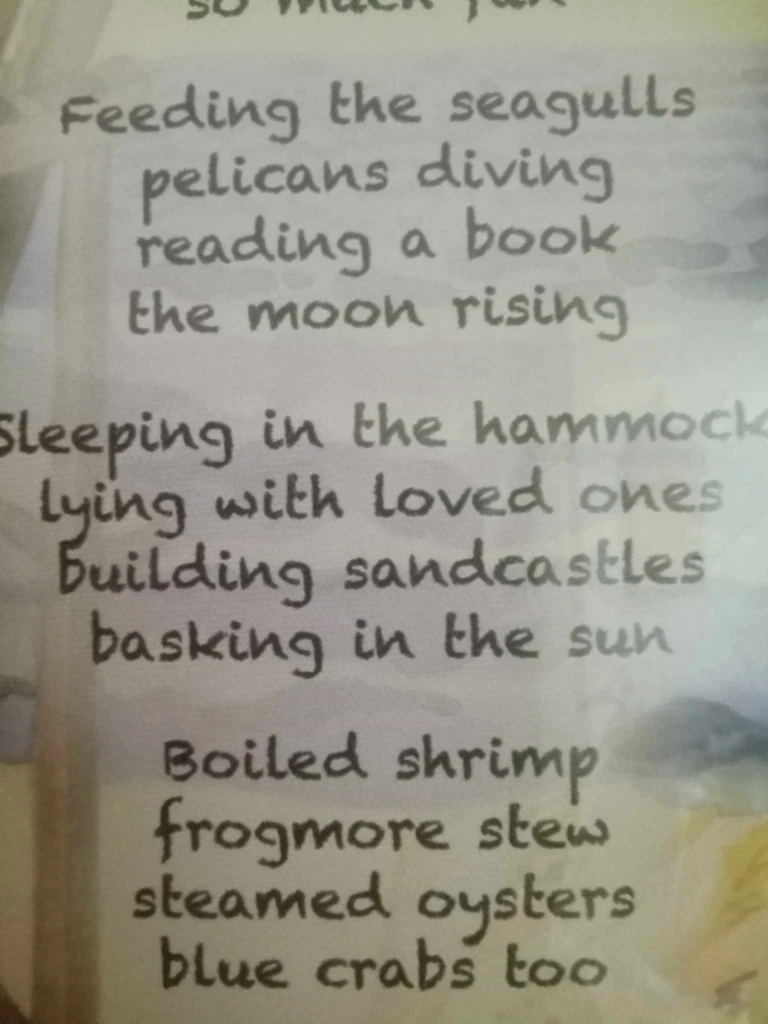 so much fun
Feeding the seagulls
pelicans diving
reading a book
the moon rising
Sleeping in the hammock
lying with loved ones
building sandcastles
basking in the sun
Boiled shrimp
frogmore stew
steamed oysters
blue crabs too